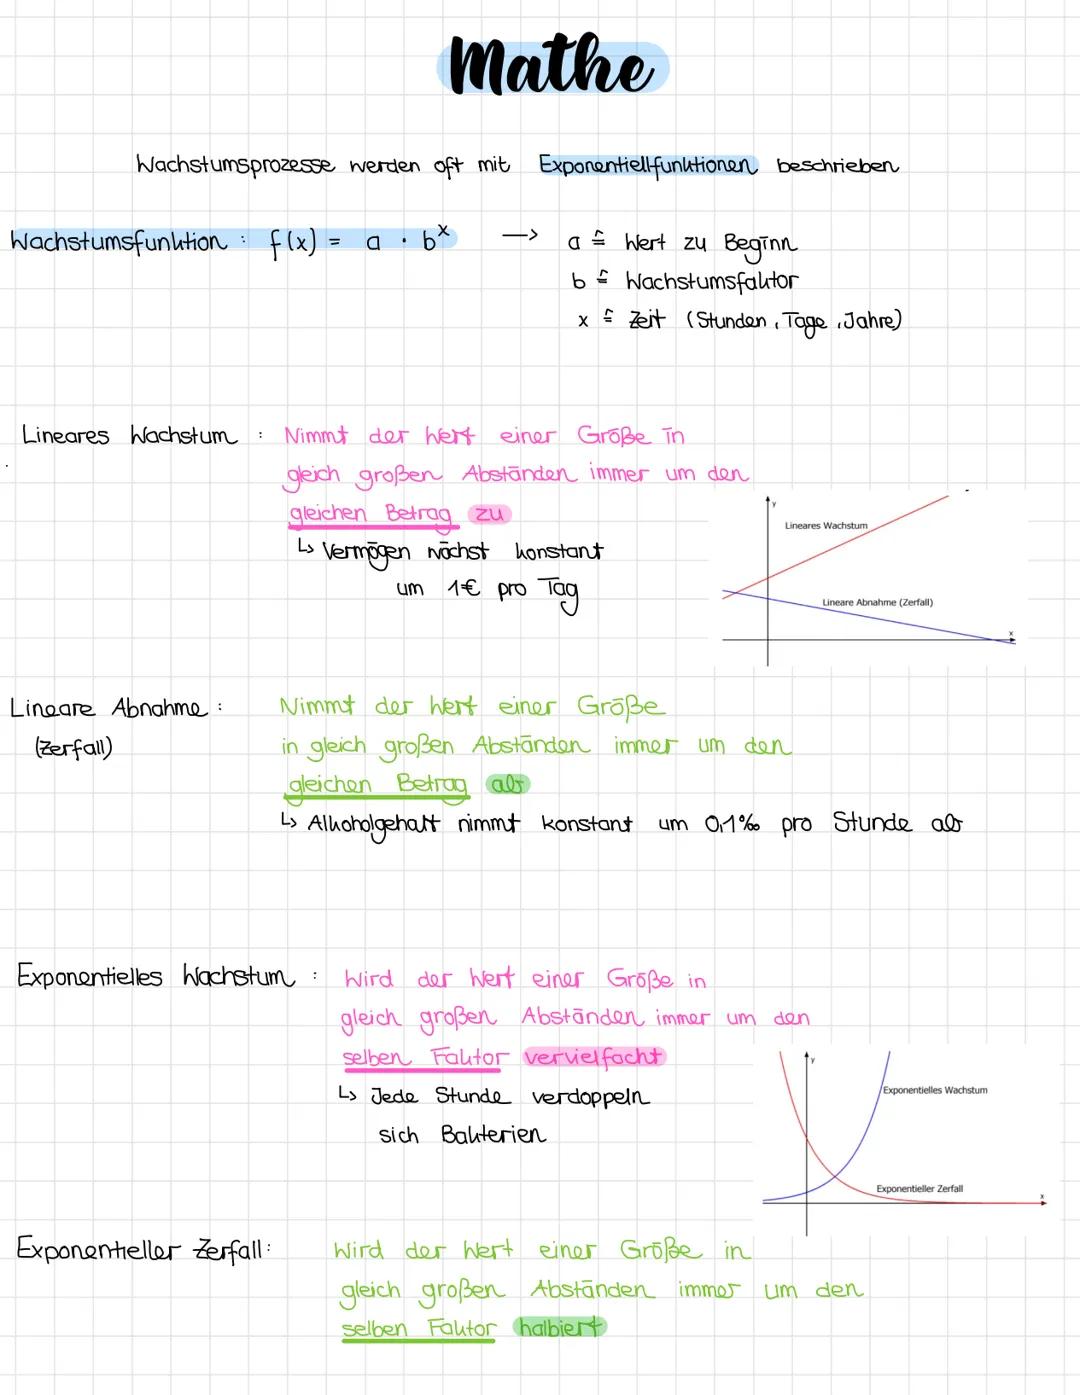 Mathe
Wachstumsprozesse werden oft mit Exponentiellfunktionen beschrieben
Wachstumsfunktion : f(x) = a · b^x → a ≙ Wert zu Beginn
b ≙ Wachstumsfaktor
x ≙ Zeit (Stunden, Tage, Jahre)
Lineares Wachstum : Nimmt der Wert einer Größe in
gleich großen Abständen immer um den
gleichen Betrag zu
↳ Vermögen wächst konstant
um 1€ pro Tag
y
Lineares Wachstum
Lineare Abnahme (Zerfall)
x
Lineare Abnahme : Nimmt der Wert einer Größe
(Zerfall) in gleich großen Abständen immer um den
gleichen Betrag ab
↳ Alkoholgehalt nimmt konstant um 0,1‰ pro Stunde ab
Exponentielles Wachstum : Wird der Wert einer Größe in
gleich großen Abständen immer um den
selben Faktor vervielfacht
↳ Jede Stunde verdoppeln
sich Bakterien
y
Exponentielles Wachstum
Exponentieller Zerfall
x
Exponentieller Zerfall: Wird der Wert einer Größe in
gleich großen Abständen immer um den
selben Faktor halbiert